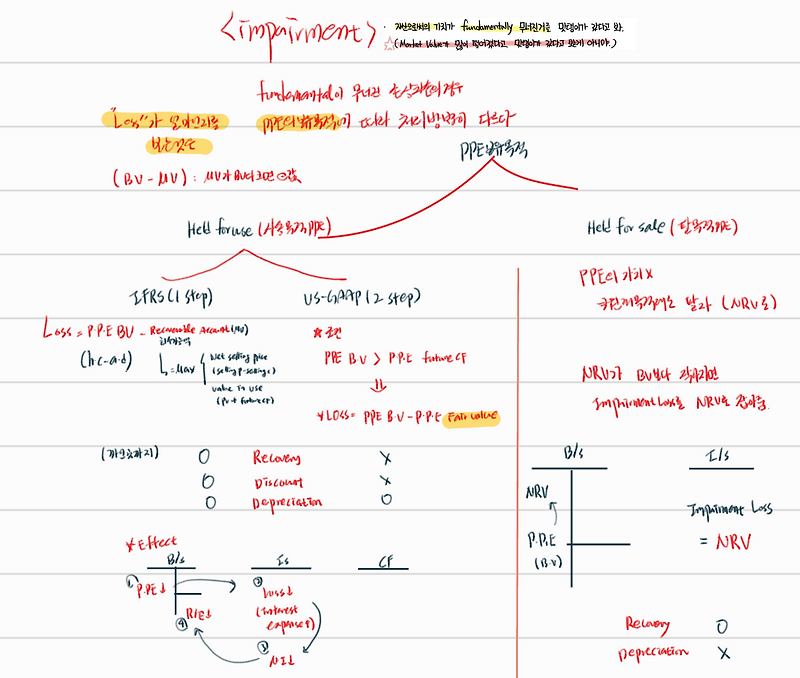 <impairment>
· 자산으로써의 가치가 fundamentally 무너진거를 맛탱이가 갔다고 봐.
☆(Market Value가 많이 떨어졌다고 맛탱이가 갔다고 보는게 아니야.)
fundamental이 무너진 손상차손의 경우
PPE의 보유목적에 따라 처리방법이 다르다
"Loss"가 얼마인지를
보는것은
(BV - MV) : MV가 BV보다 크면 ⊖값
PPE보유목적
Held for use (사용목적PPE)
Held for sale (판매목적PPE)
IFRS (1 step)
US-GAAP (2 step)
Loss = P.P.E BV - Recoverable Amount
(h.c-a.d)
↳ = Max
Net selling price
(selling p-selling c)
value in use
(PV + future CF)
☆ 조건
PPE B.V > P.P.E future CF
⇓
* LOSS = PPE B.V - P.P.E Fair value
O Recovery X
O Discount X
O Depreciation O
* Effect
B/s
Is
CF
① P.PE↓
② Loss↓
(interest
③ NI↓
④ R/E↓
PPE의 가치 X
NRV가 BV보다 작아지면
Impairment Loss를 NRV로 잡아줌.
B/s
I/s
NRV
P.P.E
(B.V)
Impairment Loss
= NRV
Recovery O
Depreciation X